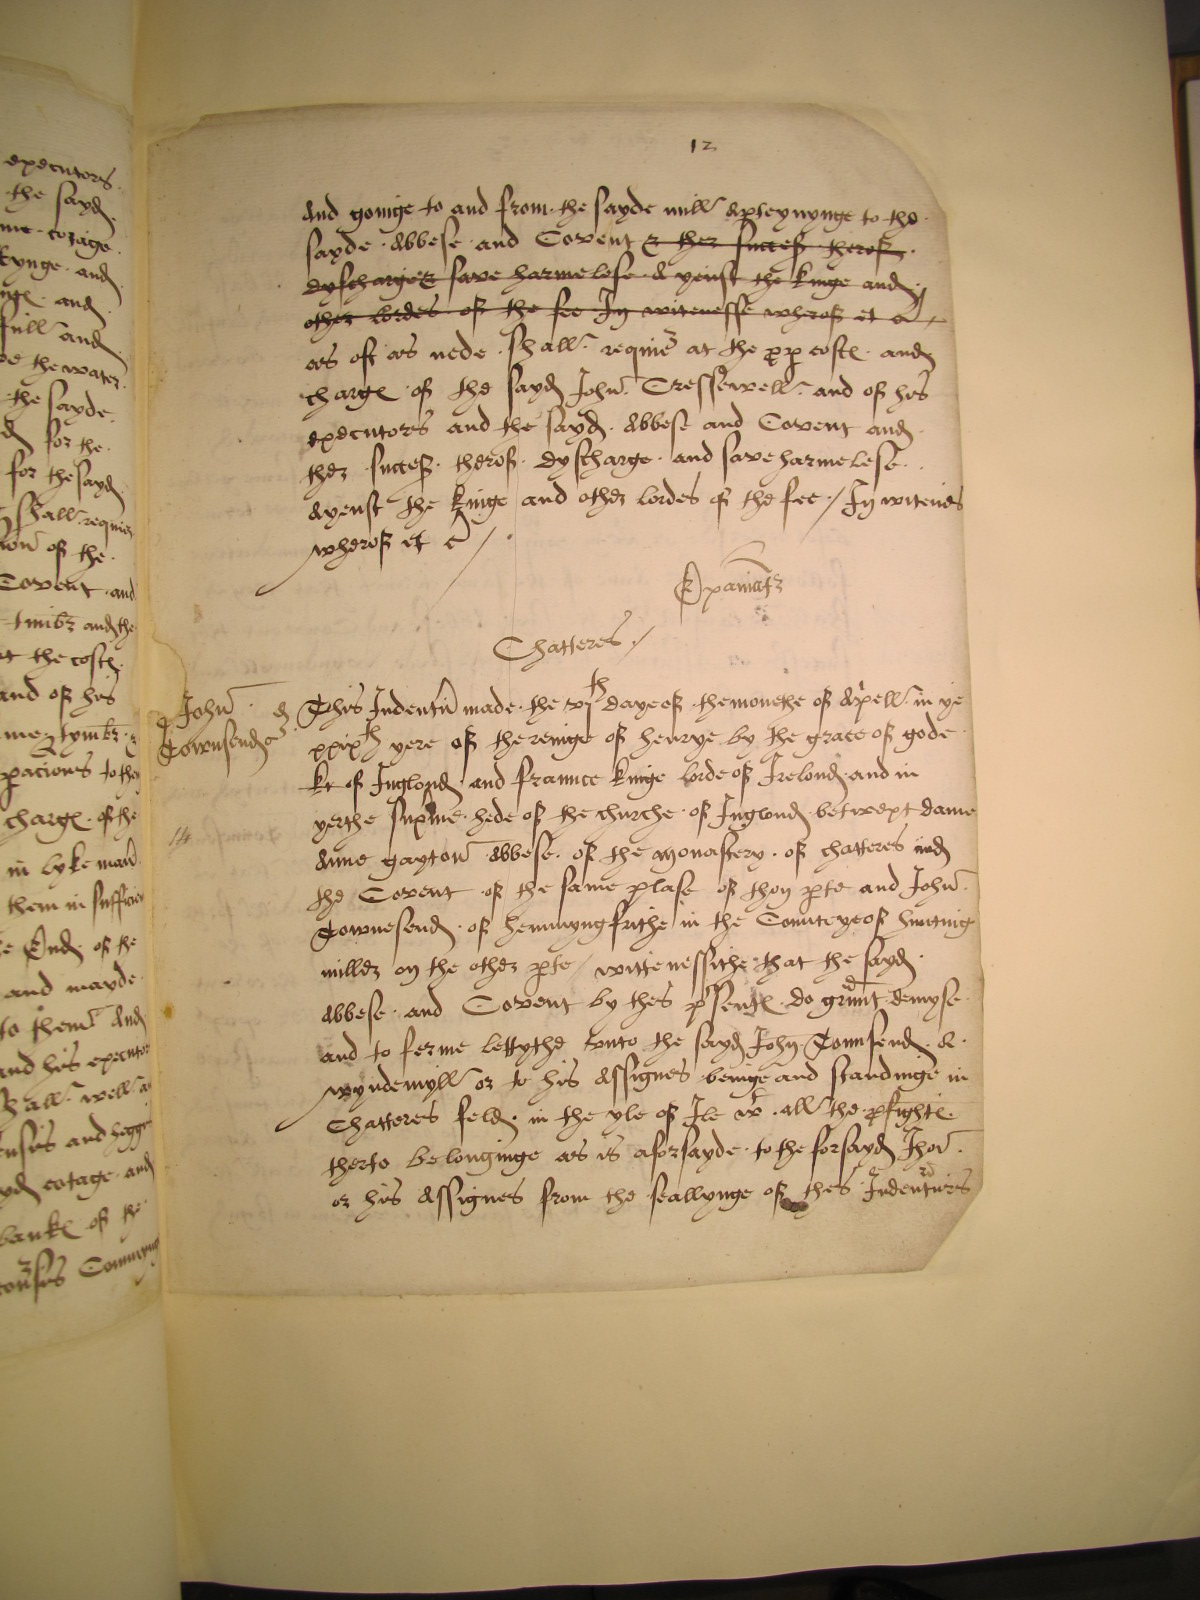 executors
the sayd
cotage
kynge and
and
full and
the water
the sayde
for the
for the sayd
shall require
of the
Covent and
and the
at the cost
and of his
me tymbr
pacions to the
charge of the
in lyke man
them in sufficien
Ende of the
and mayde
to them And
and his executor
shall well
and hegge
cotage and
banke of the
Commyng
12
And goinge to and from the sayde mill apteynynge to the
sayde Abbese and Covent & ther success therof
dyscharge & save harmelese Ayenst the kinge and
other lordes of the fee In witenesse wherof et c
as oft as nede shall require at the ppr cost and
charg of the sayd John Cressewell and of his
executors and the sayd Abbese and Covent and
ther success therof dyscharge and save harmelese
Ayenst the kinge and other lordes of the fee / In witenes
wherof et c /
Examinatr
Chatteres /
John
Townsend
14
This Indentur made the xj th daye of the monethe of Aprell in ye
xxix th yere of the reinge of henrye by the grace of gode
of Inglond and Fraunce kinge lorde of Irelond and in
yerthe supreme hede of the churche of Inglond betwext dame
Anne gayton Abbese of the monastery of chatteres and
the Covent of the same plase of thon pte and John
Townesend of hemmyngfrithe in the Counteye of hunting
on the other pte / wittenessithe that the sayd
Abbese and Covent by thes psent do graunt demyse
and to ferme lettythe unto the sayd John Tounsend A
wyndemyll or to his Assignes beinge and standinge in
Chatteres feld in the yle of Ile wt all the pfight
therto belonginge as is aforsayde to the forsayd Jhon
or his Assignes from the seallynge of thes Indenturs